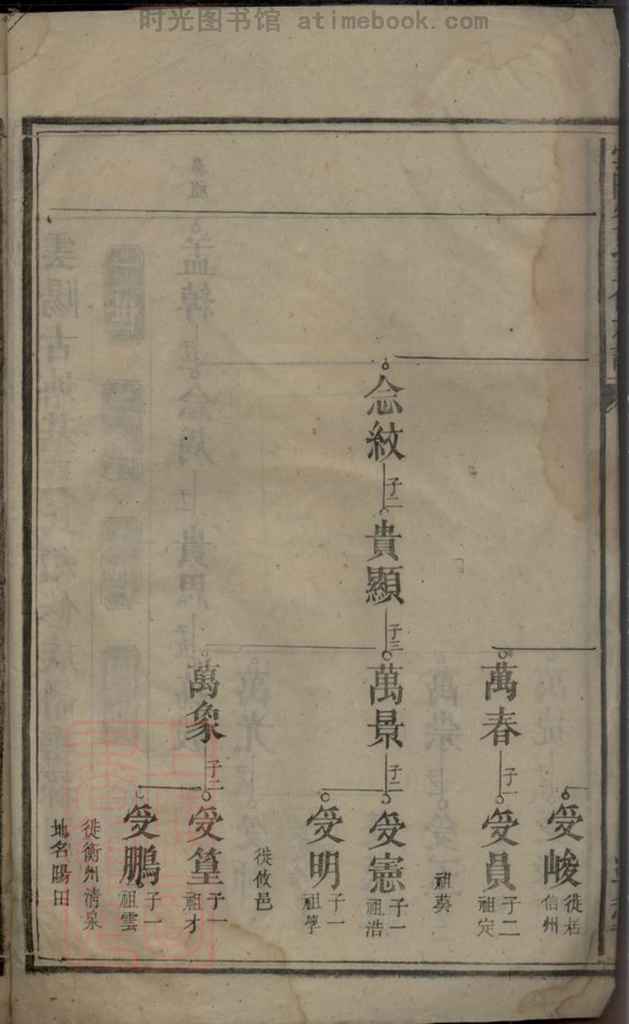 时光图书馆 atimebook.com
念紋
子二
貴顯
子三
萬春
子一
萬景
子二
萬象
子二
受峻
徙栝
信州
受員
子二
祖定
祖葵
受憲
子一
祖浩
受明
子一
祖學
徙攸邑
受篁
子一
祖才
受鵬
子一
祖雲
徙衡州清泉
地名陽田